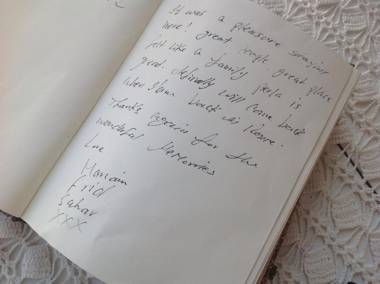 It was a pleasure staying
here! great people great place
felt like a family pool is
great. definally will come back
when I come back as
Thanks again for the
wonderful Memories
Love
Mariam
Farid
Sahar
XXX